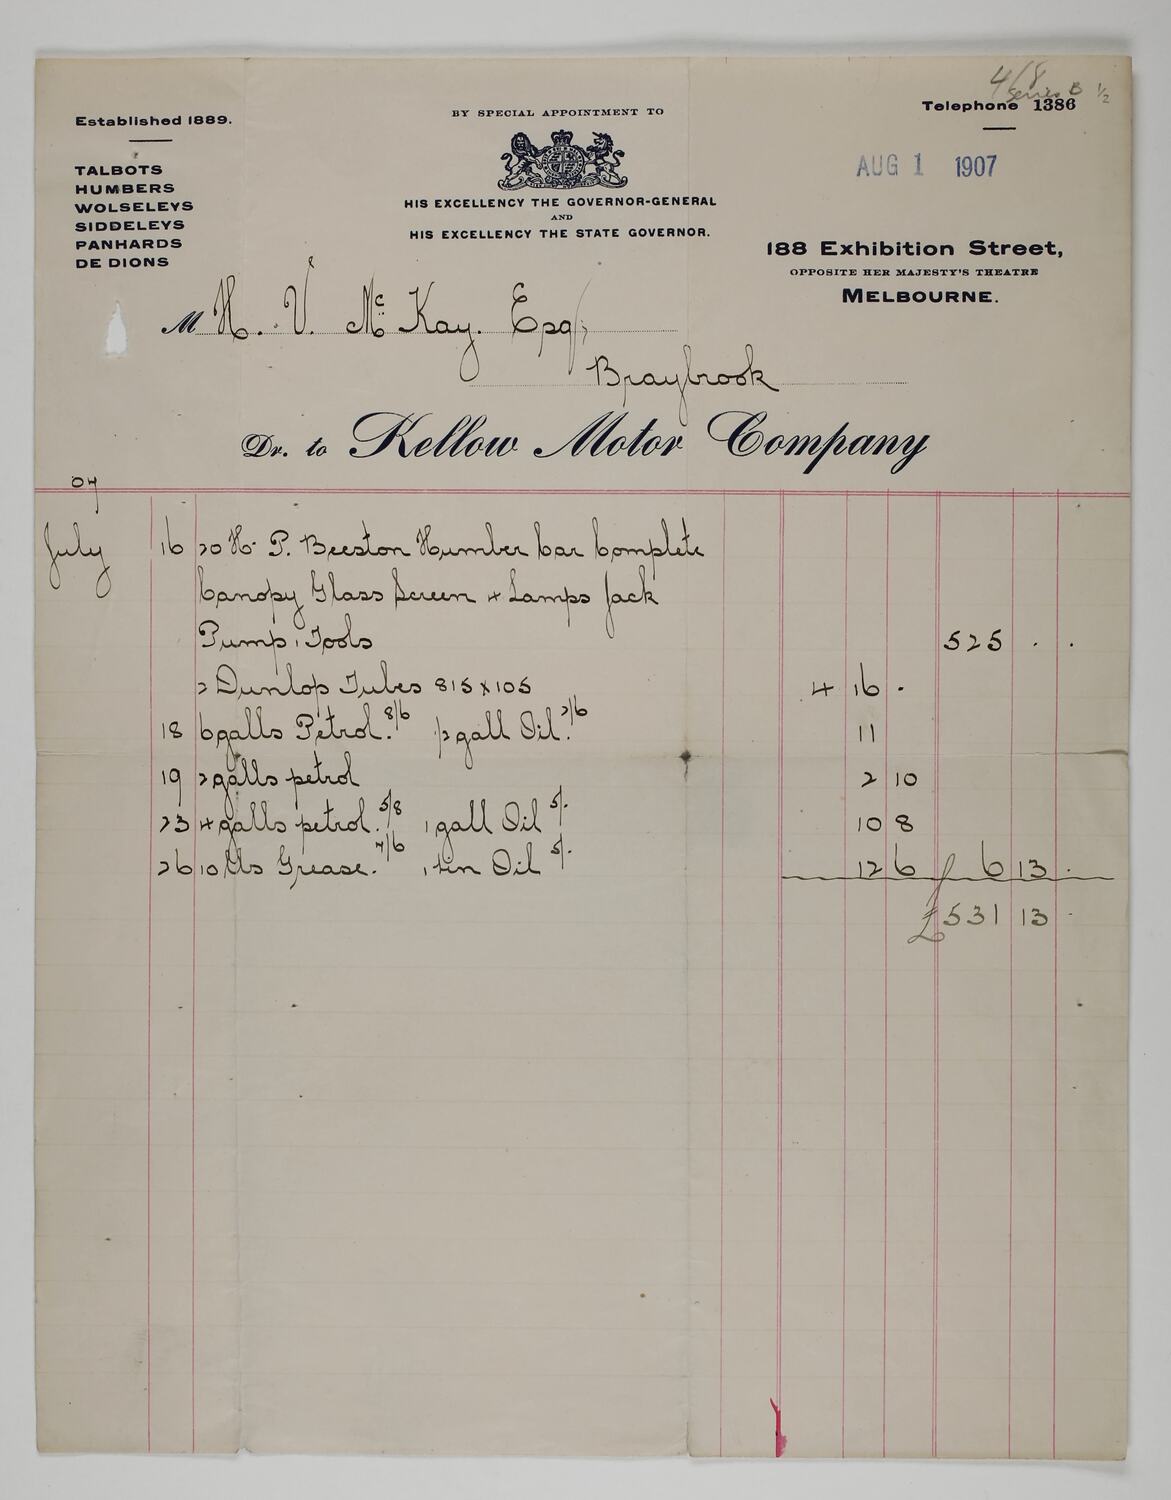 4/8
Series B ½
Established 1889.
BY SPECIAL APPOINTMENT TO
Telephone 1386
AUG 1 1907
TALBOTS
HUMBERS
WOLSELEYS
SIDDELEYS
PANHARDS
DE DIONS
HIS EXCELLENCY THE GOVERNOR-GENERAL
AND
HIS EXCELLENCY THE STATE GOVERNOR.
188 Exhibition Street,
OPPOSITE HER MAJESTY'S THEATRE
MELBOURNE.
M H. V. McKay. Esq;
Braybrook
Dr. to Kellow Motor Company
07
July 16 20 H. P. Beeston Humber Car Complete
Canopy Glass Screen 4 Lamps Jack
Pump, Tools 525 . .
2 Dunlop Tubes 815 x 105 4 16 .
18 6 galls Petrol. 8/6 ½ gall Oil. 2/6 11
19 2 galls petrol 2 10
23 4 galls petrol. 5/8 1 gall Oil 5/- 10 8
26 10 lbs Grease. 7/6 1 tin Oil 5/- 12 6 6 13 .
£531 13 -